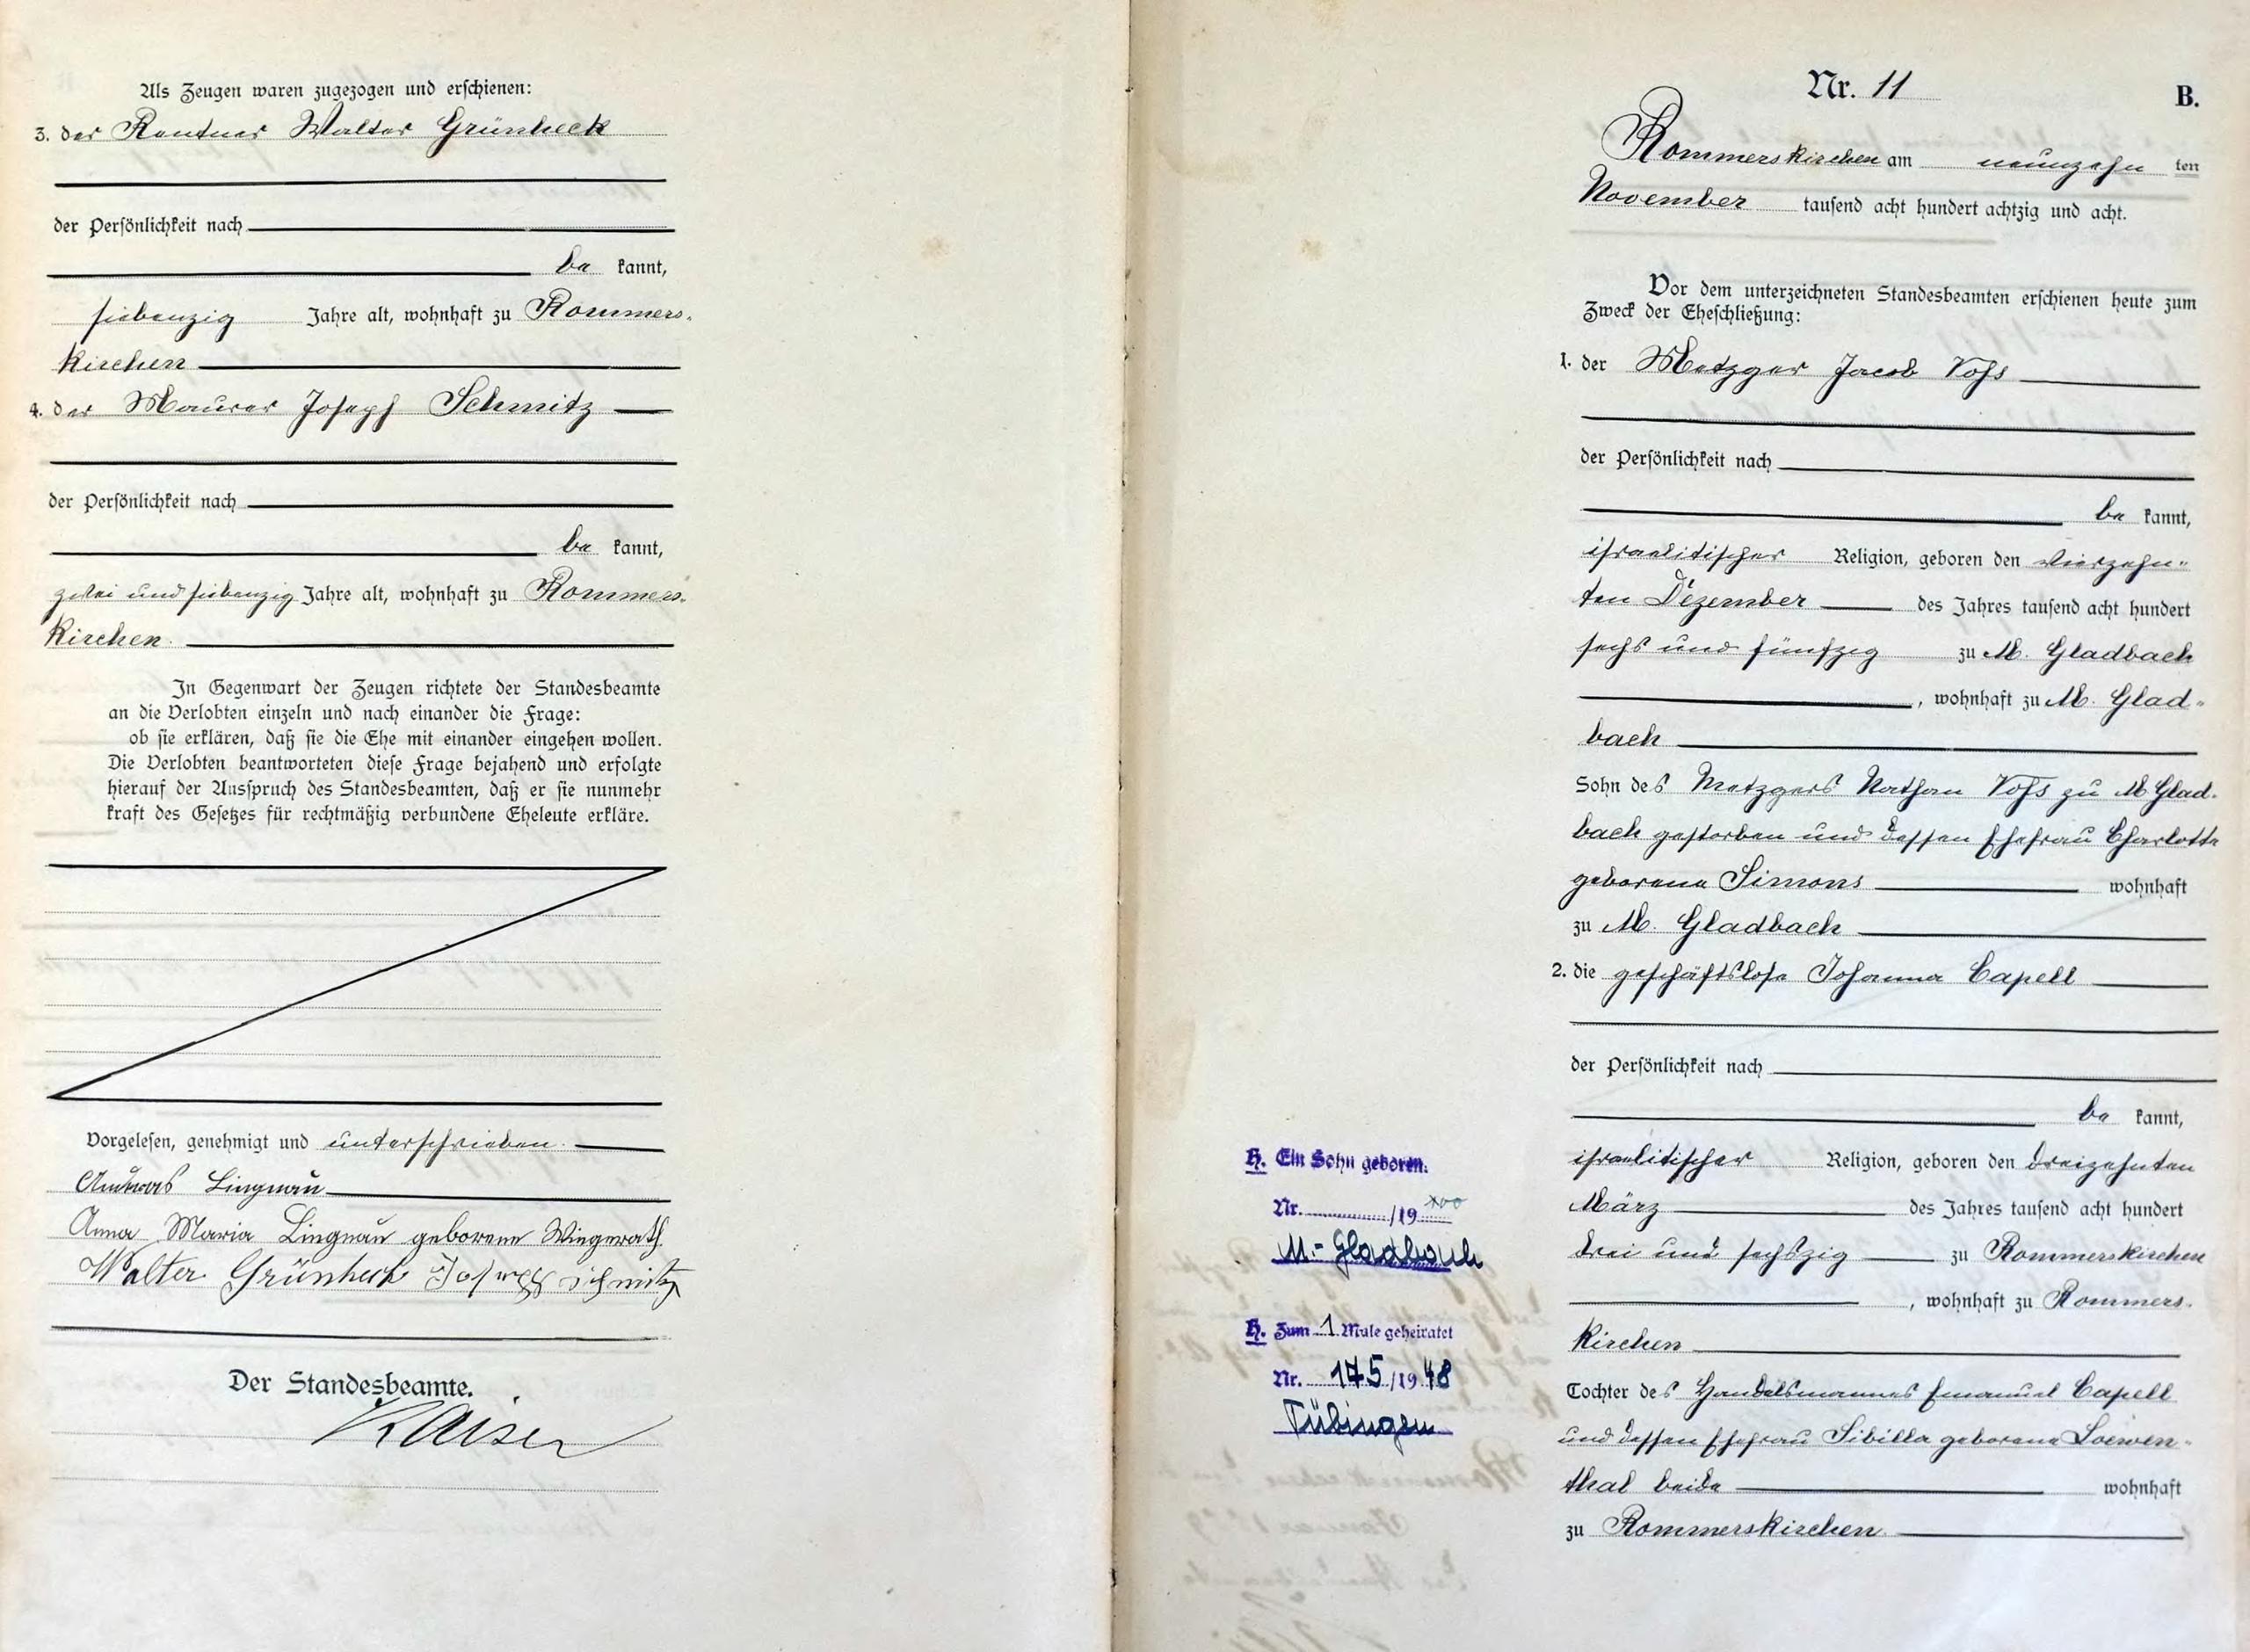 Als Zeugen waren zugezogen und erschienen:
3. der Rentner Walter Grünheck
der Persönlichkeit nach
be kannt,
siebenzig Jahre alt, wohnhaft zu Rommers-
kirchen
4. der Maurer Joseph Schmitz
der Persönlichkeit nach
be kannt,
zwei und siebenzig Jahre alt, wohnhaft zu Rommers-
kirchen.
In Gegenwart der Zeugen richtete der Standesbeamte
an die Verlobten einzeln und nach einander die Frage:
ob sie erklären, daß sie die Ehe mit einander eingehen wollen.
Die Verlobten beantworteten diese Frage bejahend und erfolgte
hierauf der Ausspruch des Standesbeamten, daß er sie nunmehr
kraft des Gesetzes für rechtmäßig verbundene Eheleute erkläre.
Vorgelesen, genehmigt und unterschrieben.
Andreas Lingnau
Anna Maria Lingnau geborene Wingerath
Walter Grünheck Joseph Schmitz
Der Standesbeamte.
Kaiser
Nr. 11
B.
Rommerskirchen am neunzehn ten
November tausend acht hundert achtzig und acht.
Vor dem unterzeichneten Standesbeamten erschienen heute zum
Zweck der Eheschließung:
1. der Metzger Jacob Voss
der Persönlichkeit nach
be kannt,
israelitischer Religion, geboren den vierzehn-
ten Dezember des Jahres tausend acht hundert
sechs und fünfzig zu M. Gladbach
, wohnhaft zu M. Glad-
bach
Sohn des Metzgers Nathan Voss zu M Glad-
bach gestorben und dessen Ehefrau Charlotte
geborene Simons wohnhaft
zu M. Gladbach
2. die geschäftslose Johanna Capell
der Persönlichkeit nach
be kannt,
israelitischer Religion, geboren den dreizehnten
März des Jahres tausend acht hundert
drei und sechszig zu Rommerskirchen
, wohnhaft zu Rommers-
kirchen
Tochter des Handelsmannes Emanuel Capell
und dessen Ehefrau Sibilla geborene Loewen-
thal beide wohnhaft
zu Rommerskirchen
H. Ein Sohn geboren:
Nr. /19
M.-Gladbach
H. Zum 1 Male geheiratet
Nr. 175/1948
Tübingen